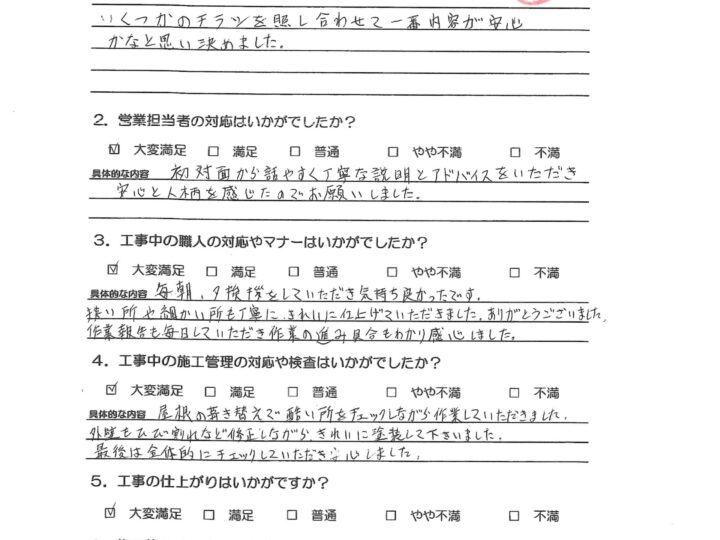 いくつかのチラシを照し合わせて一番内容が安心
かなと思い決めました。
2. 営業担当者の対応はいかがでしたか？
☑ 大変満足 □ 満足 □ 普通 □ やや不満 □ 不満
具体的な内容 初対面から話やすく丁寧な説明とアドバイスをいただき
安心と人柄を感じたのでお願いしました。
3. 工事中の職人の対応やマナーはいかがでしたか？
☑ 大変満足 □ 満足 □ 普通 □ やや不満 □ 不満
具体的な内容 毎朝、夕挨拶をしていただき気持ち良かったです。
狭い所や細かい所も丁寧に、きれいに仕上げていただきました。ありがとうございました。
作業報告も毎日していただき作業の進み具合もわかり感心しました。
4. 工事中の施工管理の対応や検査はいかがでしたか？
☑ 大変満足 □ 満足 □ 普通 □ やや不満 □ 不満
具体的な内容 屋根の葺き替えで酷い所をチェックしながら作業していただきました。
外壁もひび割れなど修正しながら、きれいに塗装して下さいました。
最後は全体的にチェックしていただき安心しました。
5. 工事の仕上がりはいかがですか？
☑ 大変満足 □ 満足 □ 普通 □ やや不満 □ 不満